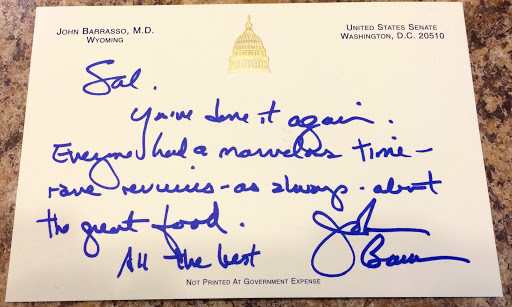 JOHN BARRASSO, M.D.
WYOMING
UNITED STATES SENATE
WASHINGTON, D.C. 20510
Sal.
You've done it again.
Everyone had a marvelous time-
rave reviews-as always-about
the great food.
All the best
John
Barrasso
NOT PRINTED AT GOVERNMENT EXPENSE